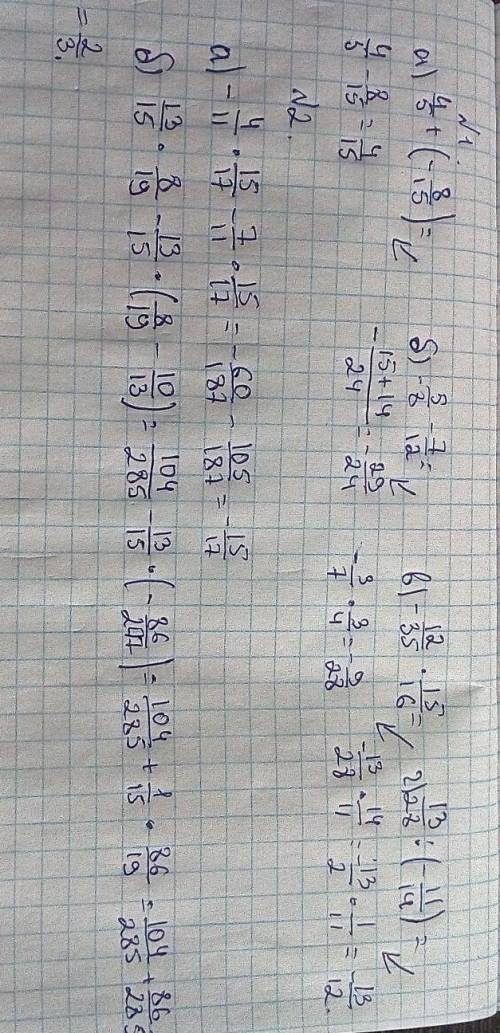 №1.
а) 4/5 + (-8/15) =
4/5 - 8/15 = 4/15
б) -5/8 - 7/12 =
-(15+14)/24 = -29/24
в) -12/35 · 15/16 =
-3/7 · 3/4 = -9/28
г) 13/28 : (-11/14) =
-13/28 · 14/11 = -13/2 · 1/11 = -13/12.
№2.
а) -4/11 · 15/17 - 7/11 · 15/17 = -60/187 - 105/187 = -15/17
б) 13/15 · 8/19 - 13/15 · (8/19 - 10/13) = 104/285 - 13/15 · (-86/247) = 104/285 + 1/15 · 86/19 = 104/285 + 86/285
= 2/3.